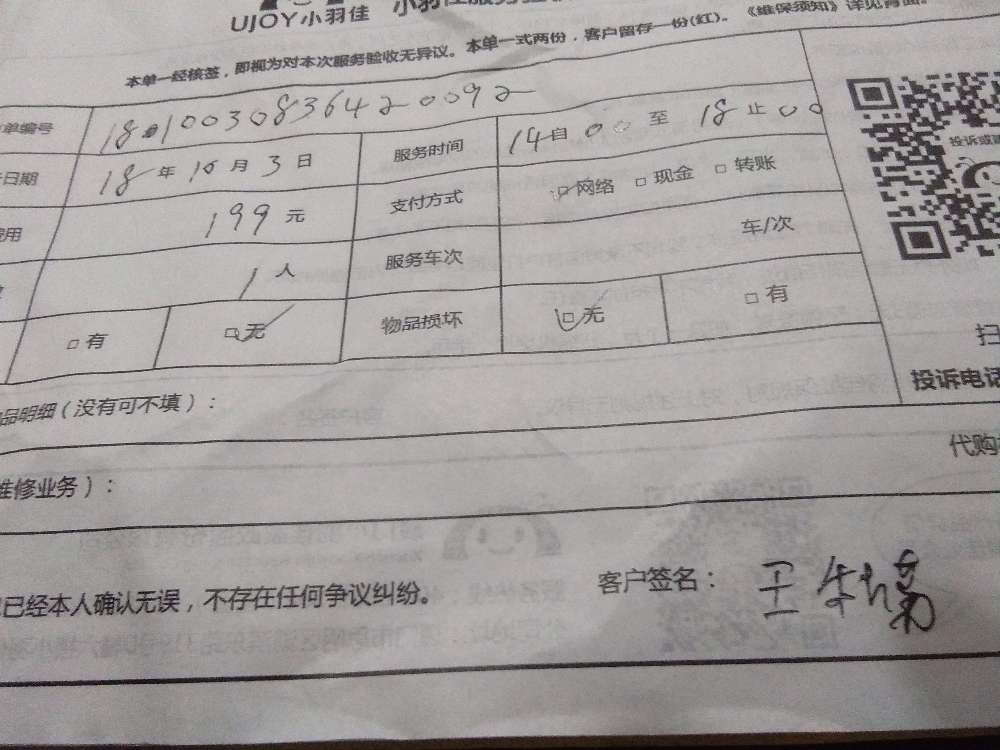 UJOY小羽佳 小羽佳服务
本单一经核签，即视为对本次服务验收无异议。本单一式两份，客户留存一份(红)。《维保须知》详见背面。
单编号 1810030836420092
日期 18年10月3日 服务时间 14自00至18止00
用 199元 支付方式 □网络 □现金 □转账
1人 服务车次 车/次
□有 □无 物品损坏 □无 □有
品明细（没有可不填）：
维修业务）：
已经本人确认无误，不存在任何争议纠纷。 客户签名：王
扫
投诉电话
代购